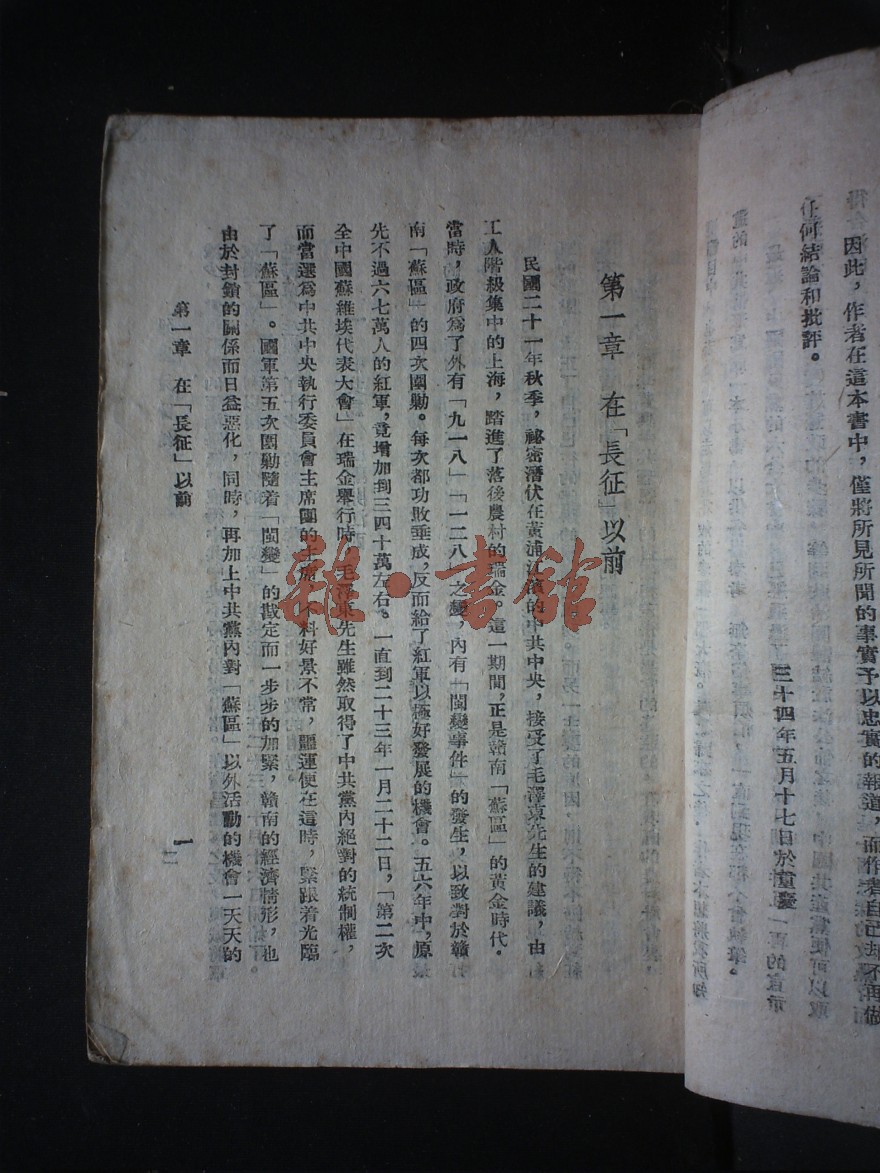 因此，作者在這本書中，僅將所見所聞的事實予以忠實的報道，而作者自己却不再做
任何結論和批評。
三十四年五月十七日於重慶
第一章 在「長征」以前
民國二十一年秋季，祕密潛伏在黃浦江濱的中共中央，接受了毛澤東先生的建議，由
工人階級集中的上海，踏進了落後農村的瑞金。這一期間，正是贛南「蘇區」的黃金時代。
當時，政府爲了外有「九一八」「一二八」之變，內有「閩變事件」的發生，以致對於贛
南「蘇區」的四次圍勦。每次都功敗垂成，反而給了紅軍以極好發展的機會。五六年中，原
先不過六七萬人的紅軍，竟增加到三四十萬左右。一直到二十三年一月二十二日，「第二次
全中國蘇維埃代表大會」在瑞金舉行時，毛澤東先生雖然取得了中共黨內絕對的統制權，
而當選爲中共中央執行委員會主席團的主席，不料好景不常，噩運便在這時，緊跟着光臨
了「蘇區」。國軍第五次圍勦隨着「閩變」的戡定而一步步的加緊，贛南的經濟情形，也
由於封鎖的關係而日益惡化，同時，再加上中共黨內對「蘇區」以外活動的機會一天天的
第一章 在「長征」以前
一
雜·書館